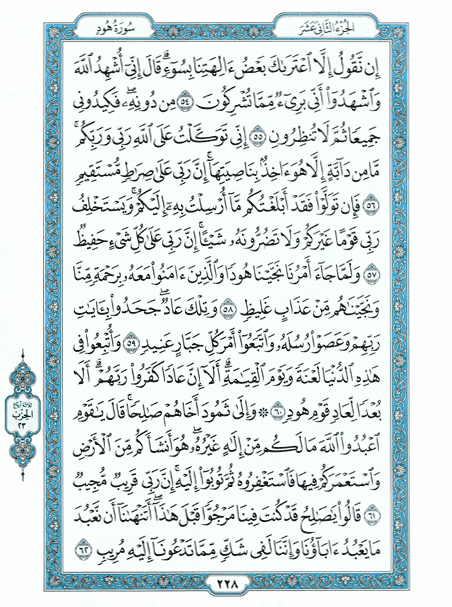 سُورَةُ هُودٍ
الجُزْءُ الثَّانِي عَشَرَ
إِن نَّقُولُ إِلَّا ٱعْتَرَىٰكَ بَعْضُ ءَالِهَتِنَا بِسُوٓءٍۗ قَالَ إِنِّيٓ أُشْهِدُ ٱللَّهَ
وَٱشْهَدُوٓا۟ أَنِّي بَرِيٓءٌ مِّمَّا تُشْرِكُونَ ٥٤ مِن دُونِهِۦۖ فَكِيدُونِي
جَمِيعًا ثُمَّ لَا تُنظِرُونِ ٥٥ إِنِّي تَوَكَّلْتُ عَلَى ٱللَّهِ رَبِّي وَرَبِّكُمۚ
مَّا مِن دَآبَّةٍ إِلَّا هُوَ ءَاخِذٌۢ بِنَاصِيَتِهَآۚ إِنَّ رَبِّي عَلَىٰ صِرَٰطٍ مُّسْتَقِيمٍ
٥٦ فَإِن تَوَلَّوْا۟ فَقَدْ أَبْلَغْتُكُم مَّآ أُرْسِلْتُ بِهِۦٓ إِلَيْكُمْۚ وَيَسْتَخْلِفُ
رَبِّي قَوْمًا غَيْرَكُمْ وَلَا تَضُرُّونَهُۥ شَيْـًٔاۚ إِنَّ رَبِّي عَلَىٰ كُلِّ شَيْءٍ حَفِيظٌ
٥٧ وَلَمَّا جَآءَ أَمْرُنَا نَجَّيْنَا هُودًا وَٱلَّذِينَ ءَامَنُوا۟ مَعَهُۥ بِرَحْمَةٍ مِّنَّا
وَنَجَّيْنَٰهُم مِّنْ عَذَابٍ غَلِيظٍ ٥٨ وَتِلْكَ عَادٌۖ جَحَدُوا۟ بِـَٔايَٰتِ
رَبِّهِمْ وَعَصَوْا۟ رُسُلَهُۥ وَٱتَّبَعُوٓا۟ أَمْرَ كُلِّ جَبَّارٍ عَنِيدٍ ٥٩ وَأُتْبِعُوا۟ فِي
هَٰذِهِ ٱلدُّنْيَا لَعْنَةً وَيَوْمَ ٱلْقِيَٰمَةِۗ أَلَآ إِنَّ عَادًا كَفَرُوا۟ رَبَّهُمْۗ أَلَا
بُعْدًا لِّعَادٍ قَوْمِ هُودٍ ٦٠ ۞ وَإِلَىٰ ثَمُودَ أَخَاهُمْ صَٰلِحًاۚ قَالَ يَٰقَوْمِ
ٱعْبُدُوا۟ ٱللَّهَ مَا لَكُم مِّنْ إِلَٰهٍ غَيْرُهُۥۖ هُوَ أَنشَأَكُم مِّنَ ٱلْأَرْضِ
وَٱسْتَعْمَرَكُمْ فِيهَا فَٱسْتَغْفِرُوهُ ثُمَّ تُوبُوٓا۟ إِلَيْهِۚ إِنَّ رَبِّي قَرِيبٌ مُّجِيبٌ
٦١ قَالُوا۟ يَٰصَٰلِحُ قَدْ كُنتَ فِينَا مَرْجُوًّا قَبْلَ هَٰذَآۖ أَتَنْهَىٰنَآ أَن نَّعْبُدَ
مَا يَعْبُدُ ءَابَآؤُنَا وَإِنَّنَا لَفِي شَكٍّ مِّمَّا تَدْعُونَآ إِلَيْهِ مُرِيبٍ ٦٢
الحزب
٢٣
٢٢٨